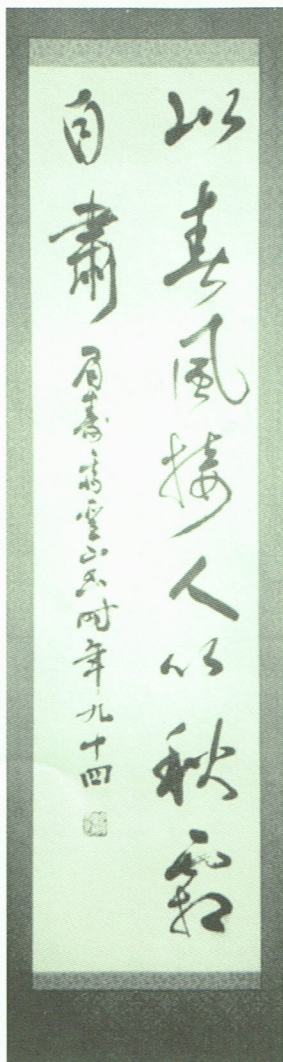 以春風接人以秋霜
自肅 眉壽雲山時年九十四